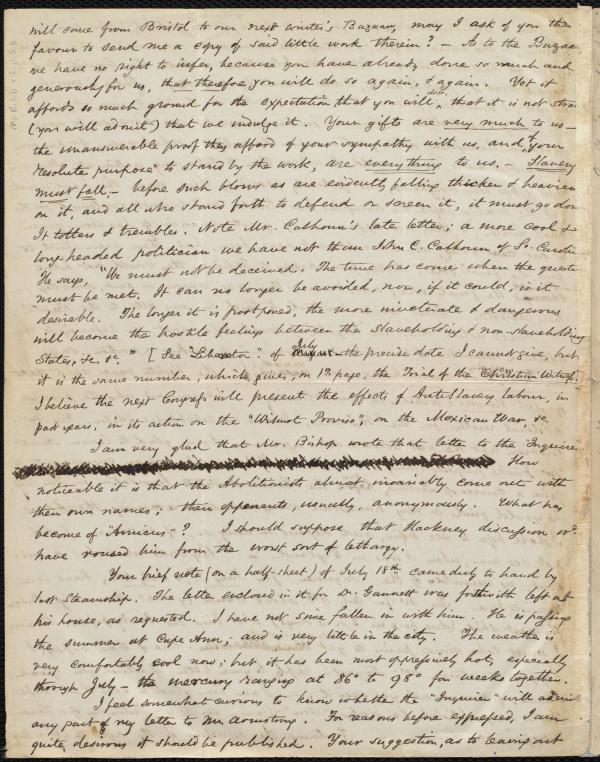 will come from Bristol to our next winter's Bazaar, may I ask of you the
favour to send me a copy of said little work therein? — As to the Bazaar
we have no right to infer, because you have already done so much and
generously for us, that therefore you will do so again, & again. Yet it
affords so much ground for the expectation that you will, that it is not strange
(you will admit) that we indulge it. Your gifts are very much to us —
the unanswerable proof they afford of your sympathy with us, and of your
resolute purpose to stand by the work, are everything to us. — Slavery
must fall, — before such blows as are evidently falling thicker & heavier
on it, and all who stand forth to defend or screen it, it must go down
It totters & trembles. Note Mr. Calhoun's late letter; a more cool &
long-headed politician we have not than John C. Calhoun of So. Carolina
He says, "We must not be deceived. The time has come when the question
must be met. It can no longer be avoided, nor, if it could, is it
desirable. The longer it is postponed, the more inveterate & dangerous
will become the hostile feelings between the slaveholding & non-slaveholding
States, &c. &c." [See "Liberator" of July the precise date I cannot give, but
it is the same number, which gives, on 1st page, the Trial of the Christian Witness.
I believe the next Congress will present the effects of AntiSlavery labour, in
past years, in its action on the "Wilmot Proviso", on the Mexican War, &c.
I am very glad that Mr. Bishop wrote that letter to the Inquirer
How
noticeable it is that the Abolitionists almost invariably come out with
their own names; their opponents, usually, anonymously. What has
become of "Amicus"? I should suppose that Hackney discussion wd.
have roused him from the worst sort of lethargy.
Your brief note (on a half-sheet) of July 18th came duly to hand by
last Steamship. The letter enclosed in it for Dr. Gannett was forthwith left at
his house, as requested. I have not since fallen in with him. He is passing
the summer at Cape Ann; and is very little in the city. The weather is
very comfortably cool now; but it has been most oppressively hot, especially
through July — the mercury ranging at 86° to 98° for weeks together.
I feel somewhat curious to know whether the "Inquirer" will admit
any part of my letter to Mr. Armstrong. For reasons before expressed, I am
quite desirous it should be published. Your suggestion, as to leaving out